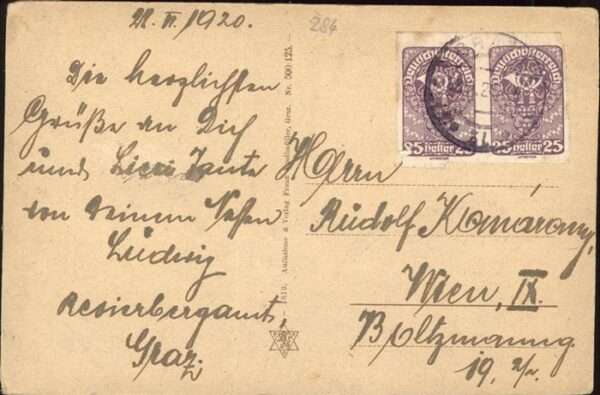 22. VI. 1920.
284
Die herzlichsten
Grüße an Dich
und Liesi Tante
von Deinem Neffen
Ludwig
Revierbergamt,
Graz.
1910. Aufnahme & Verlag Graz. Nr. 500 125.
Deutschösterreich
25 Heller 25
Deutschösterreich
25 Heller 25
Herrn
Rudolf
Wien, IX.
19. 2/